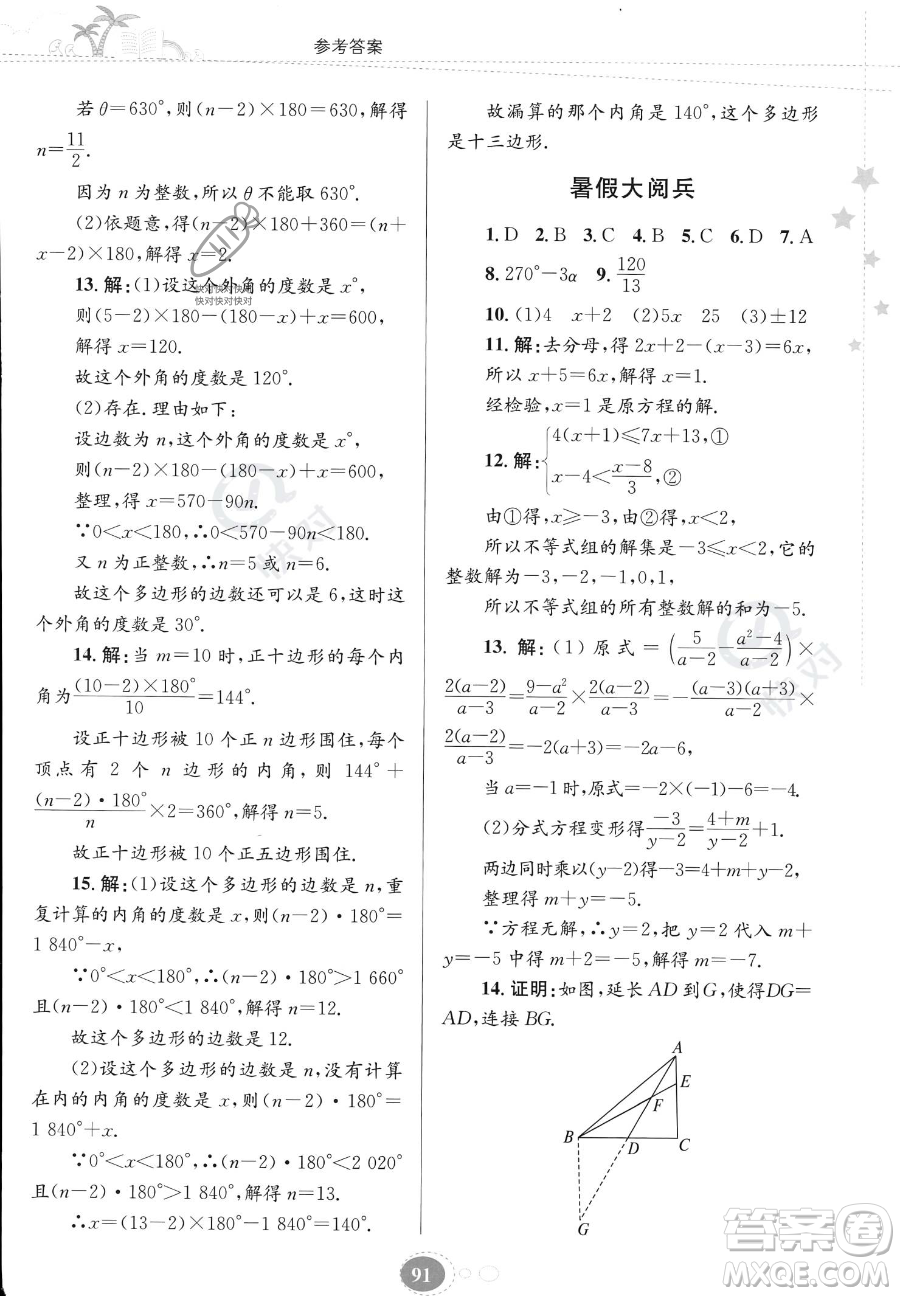 参考答案
若θ=630°,则(n-2)×180=630,解得
n=11/2.
因为n为整数,所以θ不能取630°.
(2)依题意,得(n-2)×180+360=(n+
x-2)×180,解得x=2.
13.解:(1)设这个外角的度数是x°,
则(5-2)×180-(180-x)+x=600,
解得x=120.
故这个外角的度数是120°.
(2)存在.理由如下:
设边数为n,这个外角的度数是x°,
则(n-2)×180-(180-x)+x=600,
整理,得x=570-90n.
∵0<x<180,∴0<570-90n<180.
又n为正整数,∴n=5或n=6.
故这个多边形的边数还可以是6,这时这
个外角的度数是30°.
14.解:当m=10时,正十边形的每个内
角为(10-2)×180°/10=144°.
设正十边形被10个正n边形围住,每个
顶点有2个n边形的内角,则144°+
(n-2)·180°/n×2=360°,解得n=5.
故正十边形被10个正五边形围住.
15.解:(1)设这个多边形的边数是n,重
复计算的内角的度数是x,则(n-2)·180°=
1 840°-x,
∵0°<x<180°,∴(n-2)·180°>1 660°
且(n-2)·180°<1 840°,解得n=12.
故这个多边形的边数是12.
(2)设这个多边形的边数是n,没有计算
在内的内角的度数是x,则(n-2)·180°=
1 840°+x.
∵0°<x<180°,∴(n-2)·180°<2 020°
且(n-2)·180°>1 840°,解得n=13.
∴x=(13-2)×180°-1 840°=140°.
故漏算的那个内角是140°,这个多边形
是十三边形.
暑假大阅兵
1.D 2.B 3.C 4.B 5.C 6.D 7.A
8.270°-3α 9.120/13
10.(1)4 x+2 (2)5x 25 (3)±12
11.解:去分母,得2x+2-(x-3)=6x,
所以x+5=6x,解得x=1.
经检验,x=1是原方程的解.
12.解:{4(x+1)≤7x+13,①
x-4<(x-8)/3,②
由①得,x≥-3,由②得,x<2,
所以不等式组的解集是-3≤x<2,它的
整数解为-3,-2,-1,0,1,
所以不等式组的所有整数解的和为-5.
13.解:(1)原式=(5/(a-2)-(a²-4)/(a-2))×
2(a-2)/(a-3)=(9-a²)/(a-2)×2(a-2)/(a-3)=-(a-3)(a+3)/(a-2)×
2(a-2)/(a-3)=-2(a+3)=-2a-6,
当a=-1时,原式=-2×(-1)-6=-4.
(2)分式方程变形得-3/(y-2)=(4+m)/(y-2)+1.
两边同时乘以(y-2)得-3=4+m+y-2,
整理得m+y=-5.
∵方程无解,∴y=2,把y=2代入m+
y=-5中得m+2=-5,解得m=-7.
14.证明:如图,延长AD到G,使得DG=
AD,连接BG.
A
E
F
B
D
C
G
91
快对快对快对
快对快对快对
快对
快对
答案卷
MXQE.COM